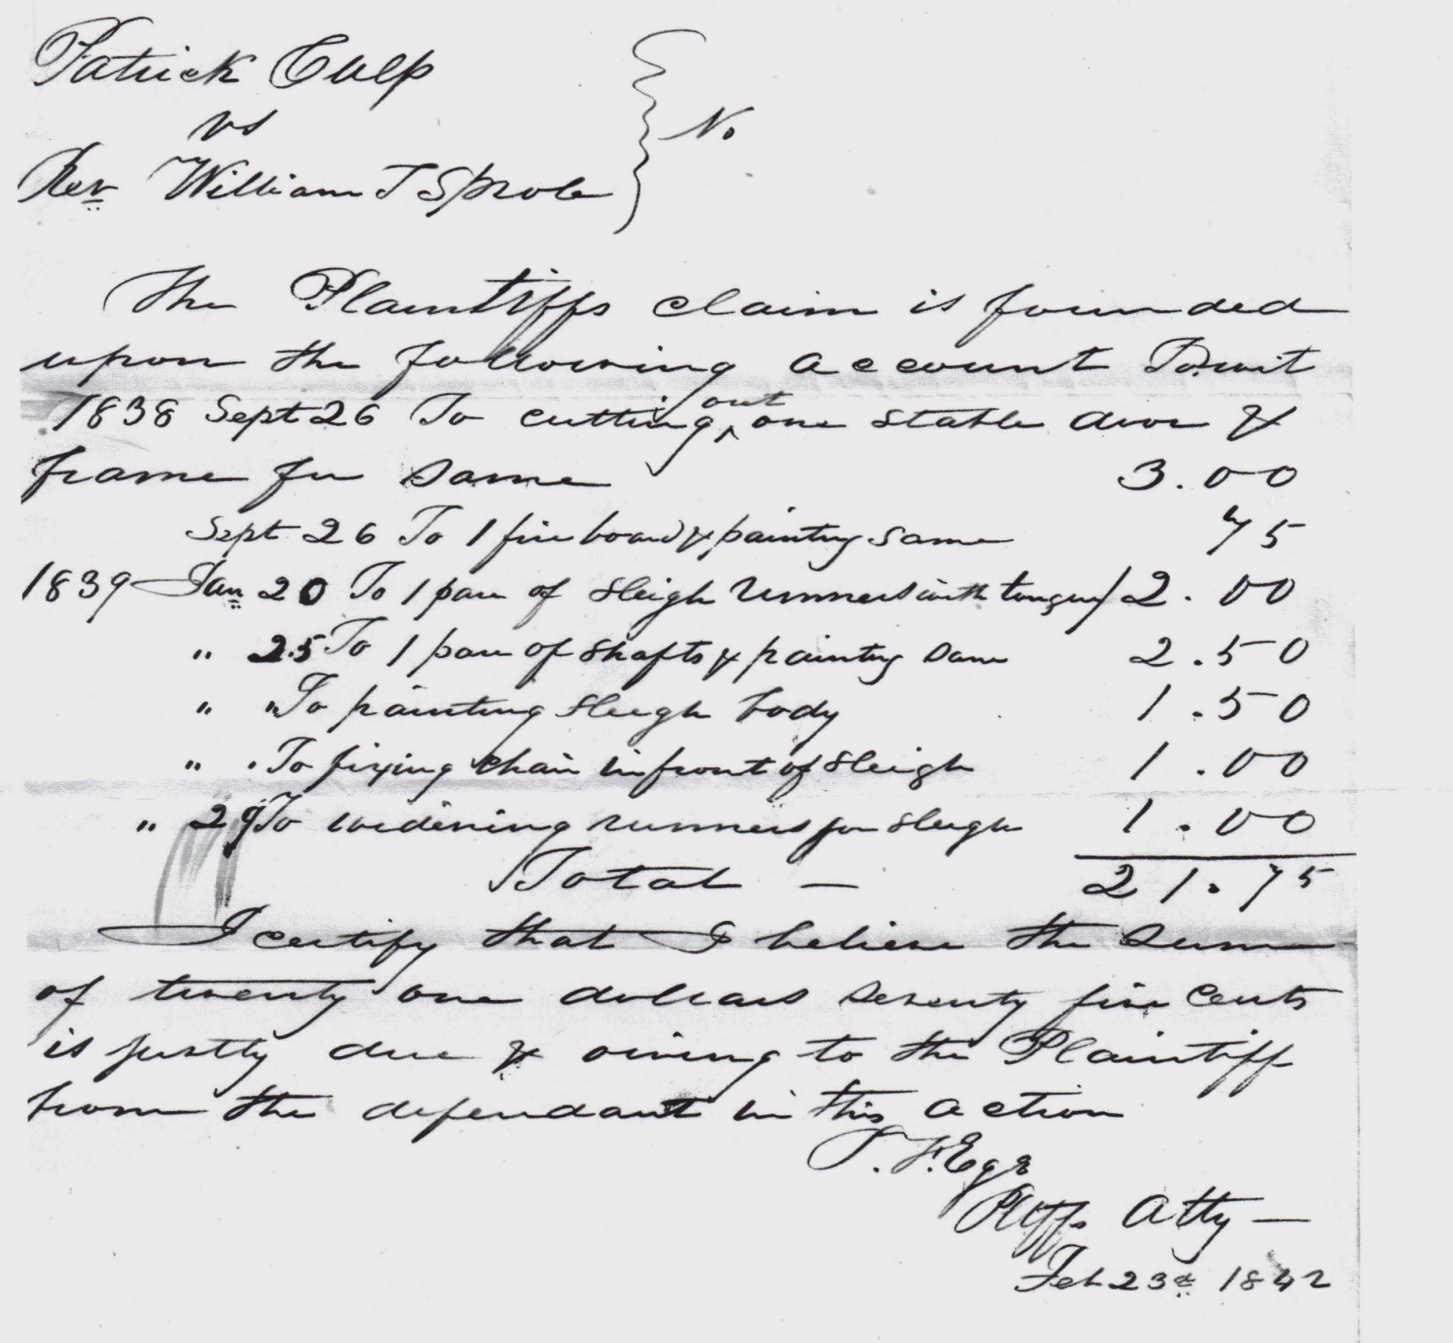 Patrick Culp
vs
Rev William T Sprole
No
The Plaintiffs claim is founded
upon the following account Towit
1838 Sept 26 To cutting out one stable door &
frame for same 3.00
Sept 26 To 1 fire board & painting same 75
1839 Jan 20 To 1 pair of sleigh runners with tongue 12.00
" 25 To 1 pair of shafts & painting same 2.50
" " To painting sleigh body 1.50
" " To fixing chain in front of sleigh 1.00
" 29 To widening runners for sleigh 1.00
Total — 21.75
I certify that I believe the sum
of twenty one dollars seventy five cents
is justly due & owing to the Plaintiff
from the defendant in this action
Plffs Atty —
Feb 23d 1842